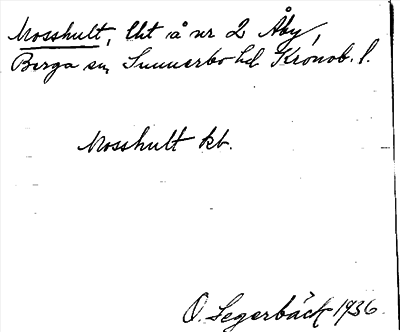 Mosshult, lht å nr 2 Åby,
Berga sn, Sunnerbo hd Kronob. l.
Mosshult kb.
O. Segerbäck 1936.